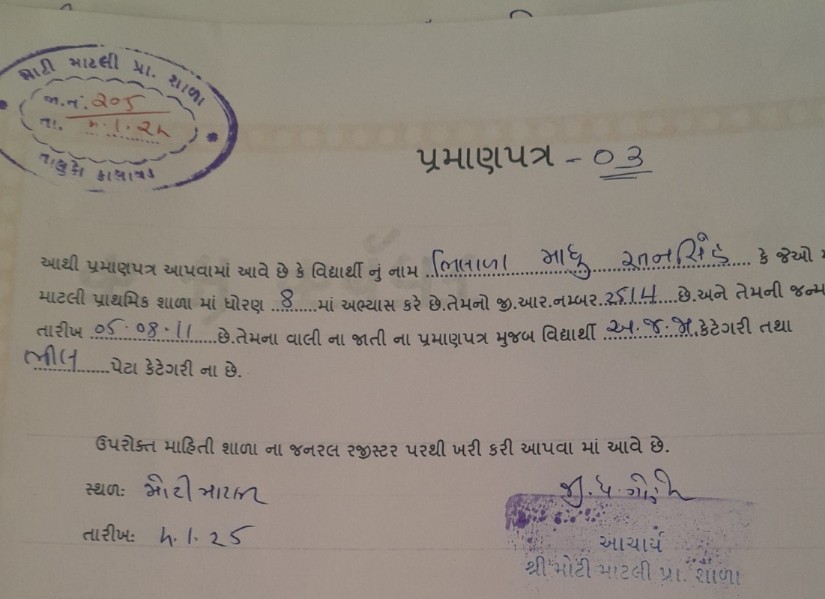 મોટી માટલી પ્રા. શાળા
જા.નં. 205
તા. ૫.1.25
તાલુકો કાલાવડ
પ્રમાણપત્ર - ૦૩
આથી પ્રમાણપત્ર આપવામાં આવે છે કે વિદ્યાર્થી નું નામ ભિલાળા માધુ રતનસિંહ કે જેઓ
માટલી પ્રાથમિક શાળા માં ધોરણ 8 માં અભ્યાસ કરે છે.તેમનો જી.આર.નમ્બર.2514 છે.અને તેમની જન્મ
તારીખ 05.08.11 છે.તેમના વાલી ના જાતી ના પ્રમાણપત્ર મુજબ વિદ્યાર્થી અ.જ.જા.કેટેગરી તથા
ભીલ પેટા કેટેગરી ના છે.
ઉપરોક્ત માહિતી શાળા ના જનરલ રજીસ્ટર પરથી ખરી કરી આપવા માં આવે છે.
સ્થળઃ મોટી માટલી
તારીખઃ ૫.1.25
આચાર્ય
શ્રી મોટી માટલી પ્રા. શાળા